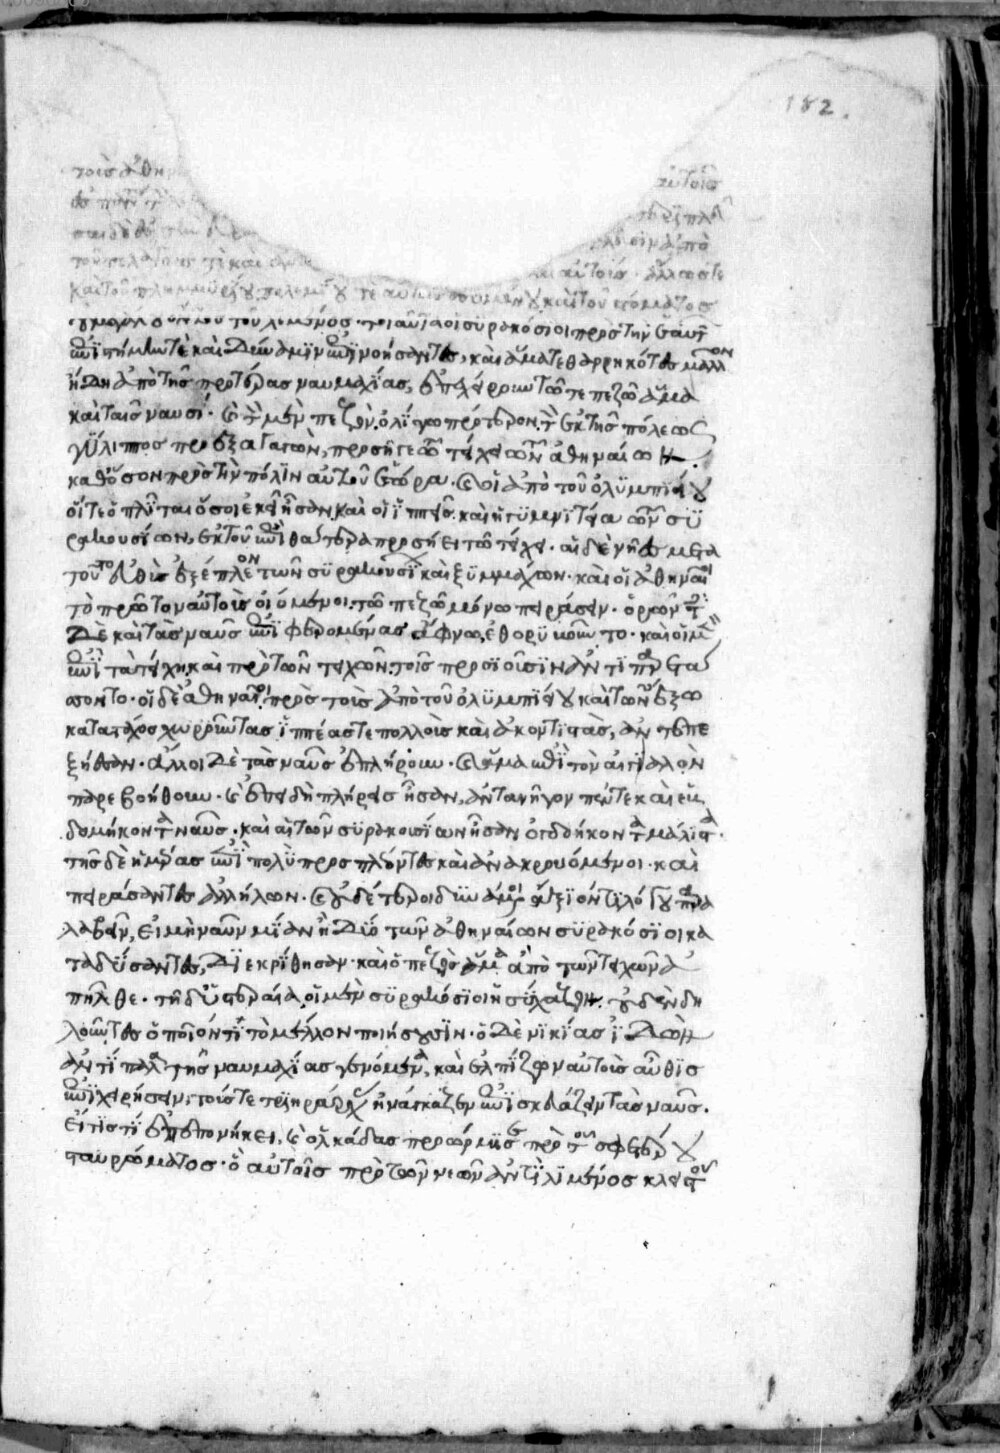 182.
τοῖς ἀθην αὐτοῖς
τοῦ πελάγους τὲ καὶ αὐτοῖς· ἄλλως τε
καὶ τοῦ πλημμυρίου πολεμίου τὲ αὐτοῖς ἐσομένου καὶ τοῦ στόματος
οὐ μεγάλου ὄντος τοῦ λιμένος· τοιαῦτα οἱ συρακόσιοι πρὸς τὴν ἑαυτῶν
ἐπιστήμην τὲ καὶ δύναμιν ἐπινοήσαντες, καὶ ἅμα τεθαρρηκότες μᾶλλον
ἤδη ἀπὸ τῆς προτέρας ναυμαχίας, ἐπεχείρουν τῶ τε πεζῶ ἅμα
καὶ ταῖς ναυσί· καὶ τὸν μὲν πεζὸν ὀλίγω πρότερον τὸν ἐκ τῆς πόλεως
γύλιππος προεξαγαγὼν, προσῆγε τῶ τείχει τῶν ἀθηναίων
καθ' ὅσον πρὸς τὴν πόλιν αὐτοῦ ἑώρα· καὶ οἱ ἀπὸ τοῦ ὀλυμπιείου
οἵ τε ὁπλῖται ὅσοι ἐκεῖ ἦσαν καὶ οἱ ἱππεῖς καὶ ἡ γυμνιτεία τῶν συ
ρακουσίων, ἐκ τοῦ ἐπὶ θάτερα προσήει τῶ τείχει· αἱ δὲ νῆες μετὰ
τοῦτο εὐθὺς ἐξέπλεον τῶν συρακουσίων καὶ ξυμμάχων· καὶ οἱ ἀθηναῖοι
τὸ πρῶτον αὐτοὺς οἰόμενοι τῶ πεζῶ μόνω πειράσειν· ὁρῶντες
δὲ καὶ τὰς ναῦς ἐπιφερομένας ἄφνω, ἐθορυβοῦντο· καὶ οἱ μὲν
ἐπὶ τὰ τείχη καὶ πρὸ τῶν τειχῶν τοῖς προσιοῦσιν ἀντιπαρετάσ
σοντο· οἱ δὲ ἀθηναῖοι πρὸς τοὺς ἀπὸ τοῦ ὀλυμπιείου καὶ τῶν ἔξω
κατὰ τάχος χωροῦντας ἱππέας τε πολλοὺς καὶ ἀκοντιστὰς, ἀντεπε
ξήεσαν· ἄλλοι δὲ τὰς ναῦς ἐπλήρουν· καὶ ἅμα ἐπὶ τὸν αἰγιαλὸν
παρεβοήθουν· καὶ ἐπειδὴ πλήρεις ἦσαν, ἀντανῆγον πέντε καὶ ἑβ
δομήκοντα ναῦς· καὶ αἱ τῶν συρακουσίων ἦσαν ὀγδοήκοντα μάλιστα·
τῆς δὲ ἡμέρας ἐπὶ πολὺ προσπλέοντες καὶ ἀνακρουόμενοι· καὶ
πειράσαντες ἀλλήλων· καὶ οὐδέτεροι δυνάμενοι ἄξιόν τι λόγου παρα
λαβεῖν, εἰ μὴ ναῦν μίαν ἢ δύο τῶν ἀθηναίων συρακόσιοι κα
ταδύσαντες, διεκρίθησαν· καὶ ὁ πεζὸς ἅμα ἀπὸ τῶν τειχῶν ἀ
πῆλθε· τῆ δ' ὑστεραία οἱ μὲν συρακόσιοι ἡσύχαζον οὐδὲν δη
λοῦντες ὁποῖόν τι τὸ μέλλον ποιήσουσιν· ὁ δὲ νικίας ἰδὼν
ἀντίπαλα τῆς ναυμαχίας γενόμενα, καὶ ἐλπίζων αὐτοὺς αὖθις
ἐπιχειρήσειν, τούς τε τριηράρχους ἠνάγκαζεν ἐπισκευάζειν τὰς ναῦς·
εἴ τίς τι ἐπεπονήκει, καὶ ὁλκάδας προώρμισε πρὸ τοῦ σφετέρου
σταυρώματος· ὃ αὐτοῖς πρὸ τῶν νεῶν ἀντὶ λιμένος κλειστοῦ